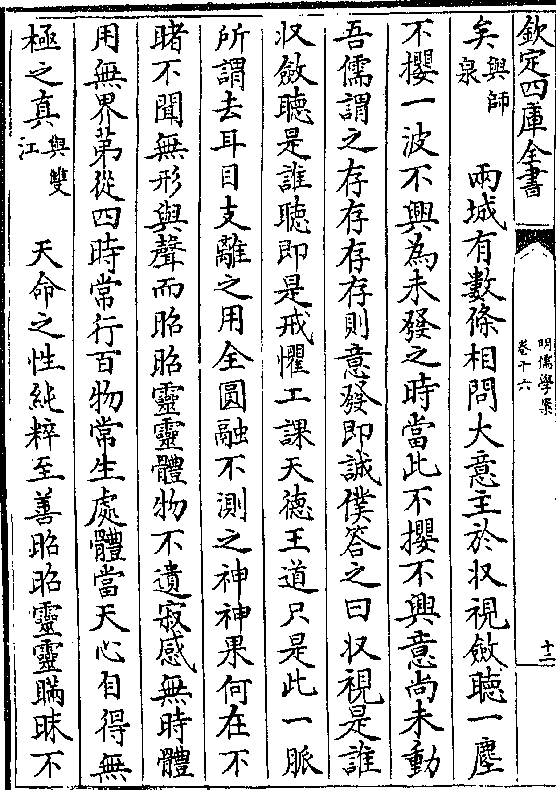 欽定四庫全書
明儒學案
卷十六
十二
矣與師泉　兩城有數條相問大意主於収視斂聽一塵
不攖一波不興為未發之時當此不攖不興意尚未動
吾儒謂之存存存存則意發即誠僕答之曰収視是誰
収斂聽是誰聽即是戒懼工課天德王道只是此一脈
所謂去耳目支離之用全圓融不測之神神果何在不
睹不聞無形與聲而昭昭靈靈體物不遺寂感無時體
用無界第從四時常行百物常生處體當天心自得無
極之真與雙江　天命之性純粹至善昭昭靈靈瞞昧不